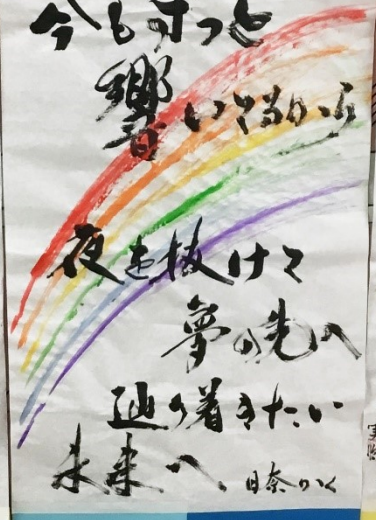 今もずっと
響いてるから
夜を抜けて
夢の先へ
辿り着きたい
未来へ
日奈かく
実